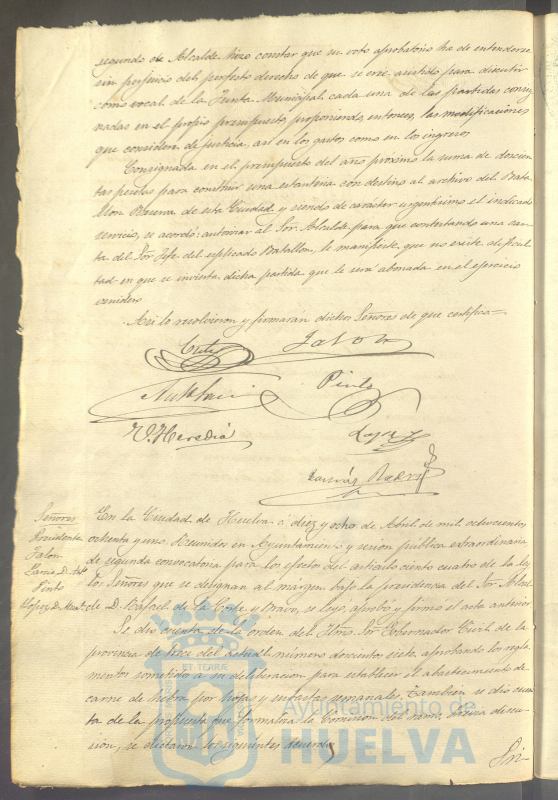 segundo de Alcalde hizo constar que su voto aprobatorio ha de entenderse
sin perjuicio del perfecto derecho de que se cree asistido para discutir
como vocal de la Junta Municipal cada una de las partidas consig-
nadas en el propio presupuesto, proponiendo entonces, las modificaciones
que considere de justicia, asi en los gastos como en los ingresos
Consignada en el presupuesto del año proximo la suma de doscien-
tas pesetas para construir una estanteria con destino al archivo del Bata-
llon Reserva de esta Ciudad y siendo de caracter urgentisimo el indicado
servicio, se acordó: autorizar al Sor. Alcalde para que contestando una car-
ta del Sor. Jefe del esplicado Batallon, le manifieste, que no existe dificul-
tad en que se invierta dicha partida que le será abonada en el ejercicio
venidero
Asi lo resolvieron y firmaran dichos Señores de que certifico=
Jalon
Pinto
V. Heredia
Lopez
Señores
Presidente
Jalon
Garcia, D. Anto
Pinto
Lopez, D. Man.
En la Ciudad de Huelva á diez y ocho de Abril de mil ochocientos
ochenta y uno. Reunidos en Ayuntamiento y sesion pública extraordinaria
de segunda convocatoria para los efectos del articulo ciento cuatro de la ley
los Señores que se designan al margen bajo la presidencia del Sor. Alcal-
de D. Rafael de la Corte y Bravo, se leyo, aprobo y firmo el acta anterior
Se dio cuenta de la orden del Iltmo. Sor. Gobernador Civil de la
provincia de trece del actual número doscientos siete, aprobando los regla-
mentos sometidos a su deliberacion para establecer el abastecimiento de
carne de hebra por hojas y subastas semanales. Tambien se dio cuen-
ta de la propuesta que formulaba la Comision del ramo, previa discu-
sion, se dictaron los siguientes acuerdos
Pri-
ET TERRÆ
Ayuntamiento de
HUELVA